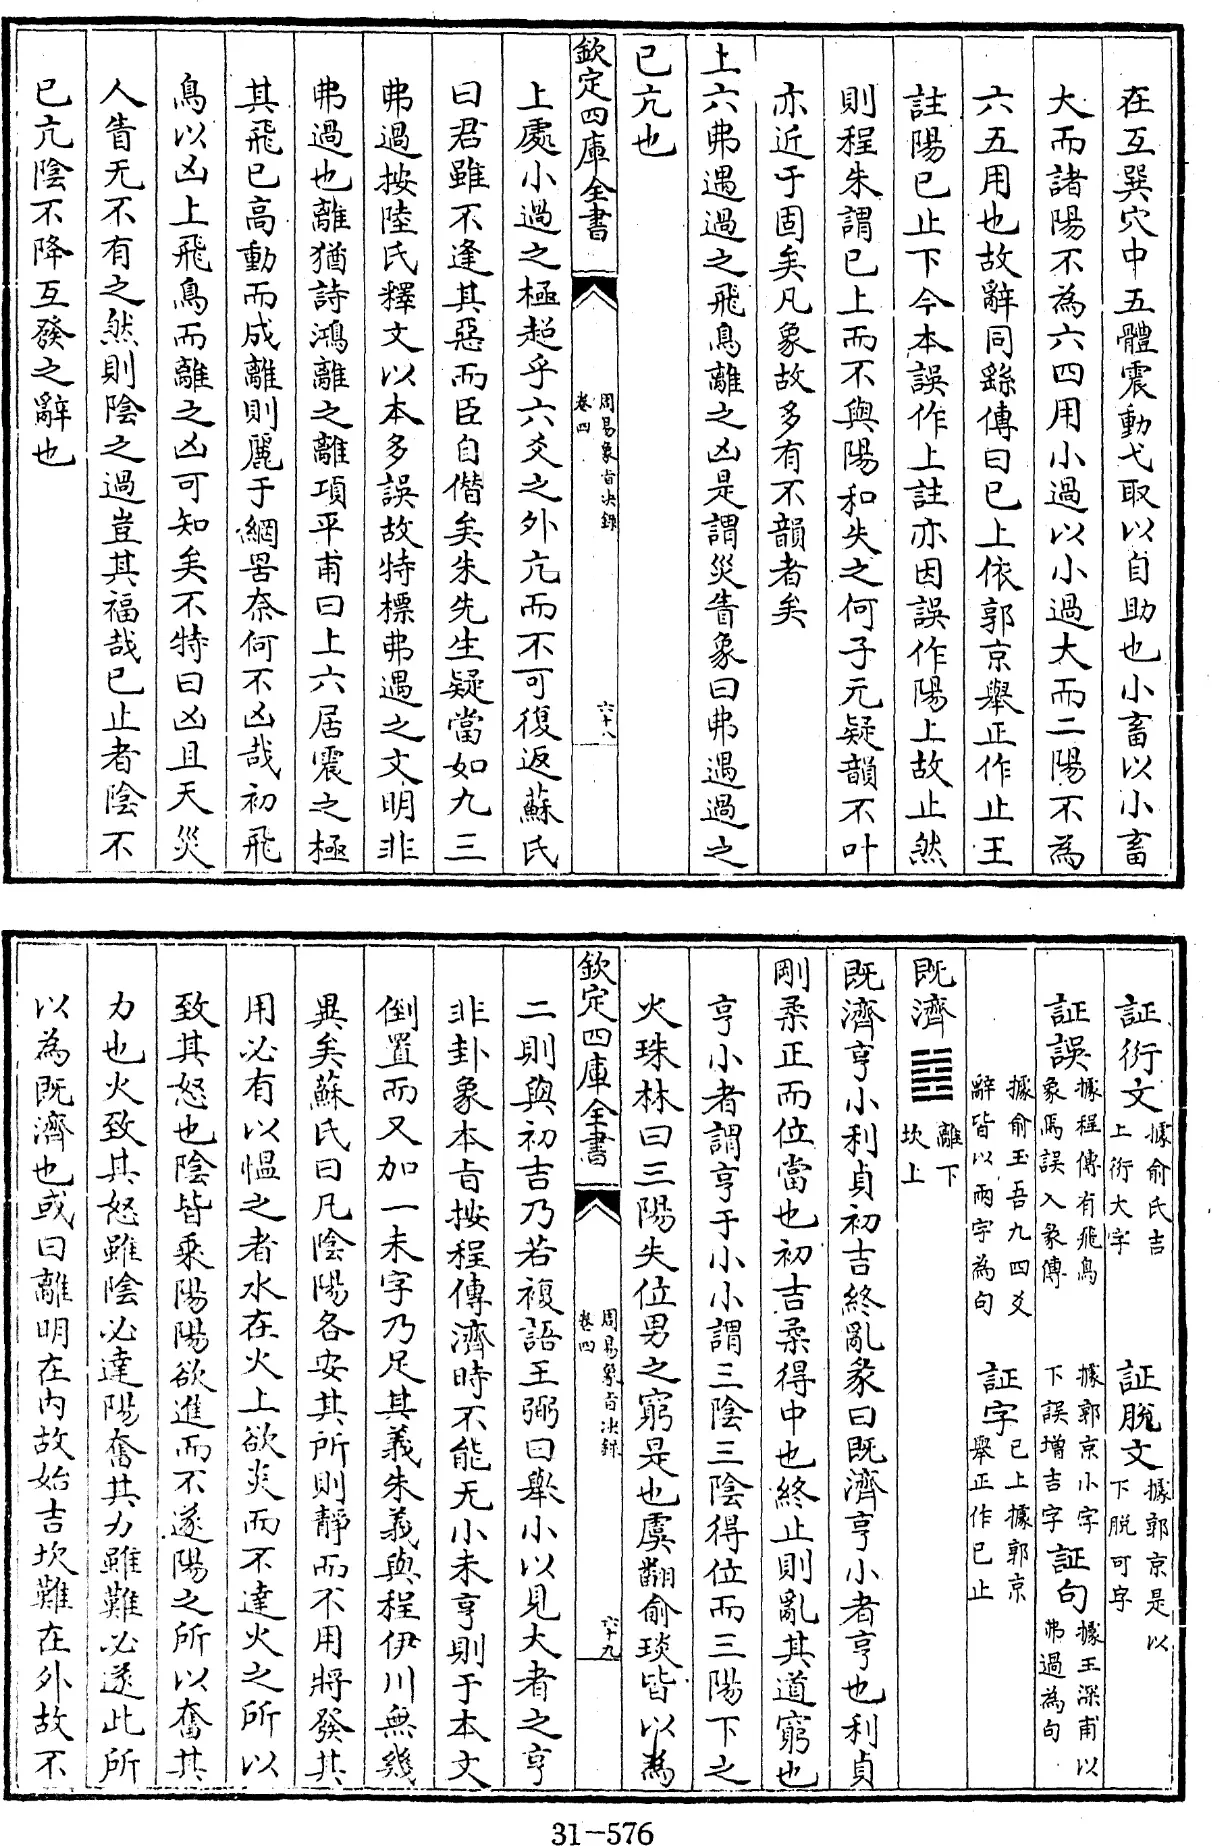 在互巽穴中五體震動弋取以自助也小畜以小畜
大而諸陽不為六四用小過以小過大而二陽不為
六五用也故辭同繇傳曰已上依郭京舉正作止王
註陽已止下今本誤作上註亦因誤作陽上故止然
則程朱謂已上而不與陽和失之何子元疑韻不叶
亦近于固矣凡象故多有不韻者矣
上六弗遇過之飛鳥離之凶是謂災眚象曰弗遇過之
已亢也
欽定四庫全書
周易象旨決錄
卷四
六十八
上處小過之極超乎六爻之外亢而不可復返蘇氏
曰君雖不逢其惡而臣自僭矣朱先生疑當如九三
弗過按陸氏釋文以本多誤故特標弗遇之文明非
弗過也離猶詩鴻離之離項平甫曰上六居震之極
其飛已高動而成離則麗于網罟奈何不凶哉初飛
鳥以凶上飛鳥而離之凶可知矣不特曰凶且天災
人眚无不有之然則陰之過豈其福哉已止者陰不
已亢陰不降互發之辭也
証衍文
據俞氏吉
上衍大字
証脫文
據郭京是以
下脫可字
証誤
據程傳有飛鳥
象焉誤入彖傳
據郭京小字
下誤增吉字
証句
據王深甫以
弗過為句
據俞玉吾九四爻
辭皆以兩字為句
証字
已上據郭京
舉正作已止
既濟
離下
坎上
既濟亨小利貞初吉終亂彖曰既濟亨小者亨也利貞
剛柔正而位當也初吉柔得中也終止則亂其道窮也
亨小者謂亨于小小謂三陰三陰得位而三陽下之
火珠林曰三陽失位男之窮是也虞翻俞琰皆以為
欽定四庫全書
周易象旨決錄
卷四
六十九
二則與初吉乃若複語王弼曰舉小以見大者之亨
非卦象本旨按程傳濟時不能无小未亨則于本文
倒置而又加一未字乃足其義朱義與程伊川無幾
異矣蘇氏曰凡陰陽各安其所則靜而不用將發其
用必有以慍之者水在火上欲炎而不達火之所以
致其怒也陰皆乘陽陽欲進而不遂陽之所以奮其
力也火致其怒雖陰必達陽奮其力雖難必遂此所
以為既濟也或曰離明在内故始吉坎難在外故不
31-576